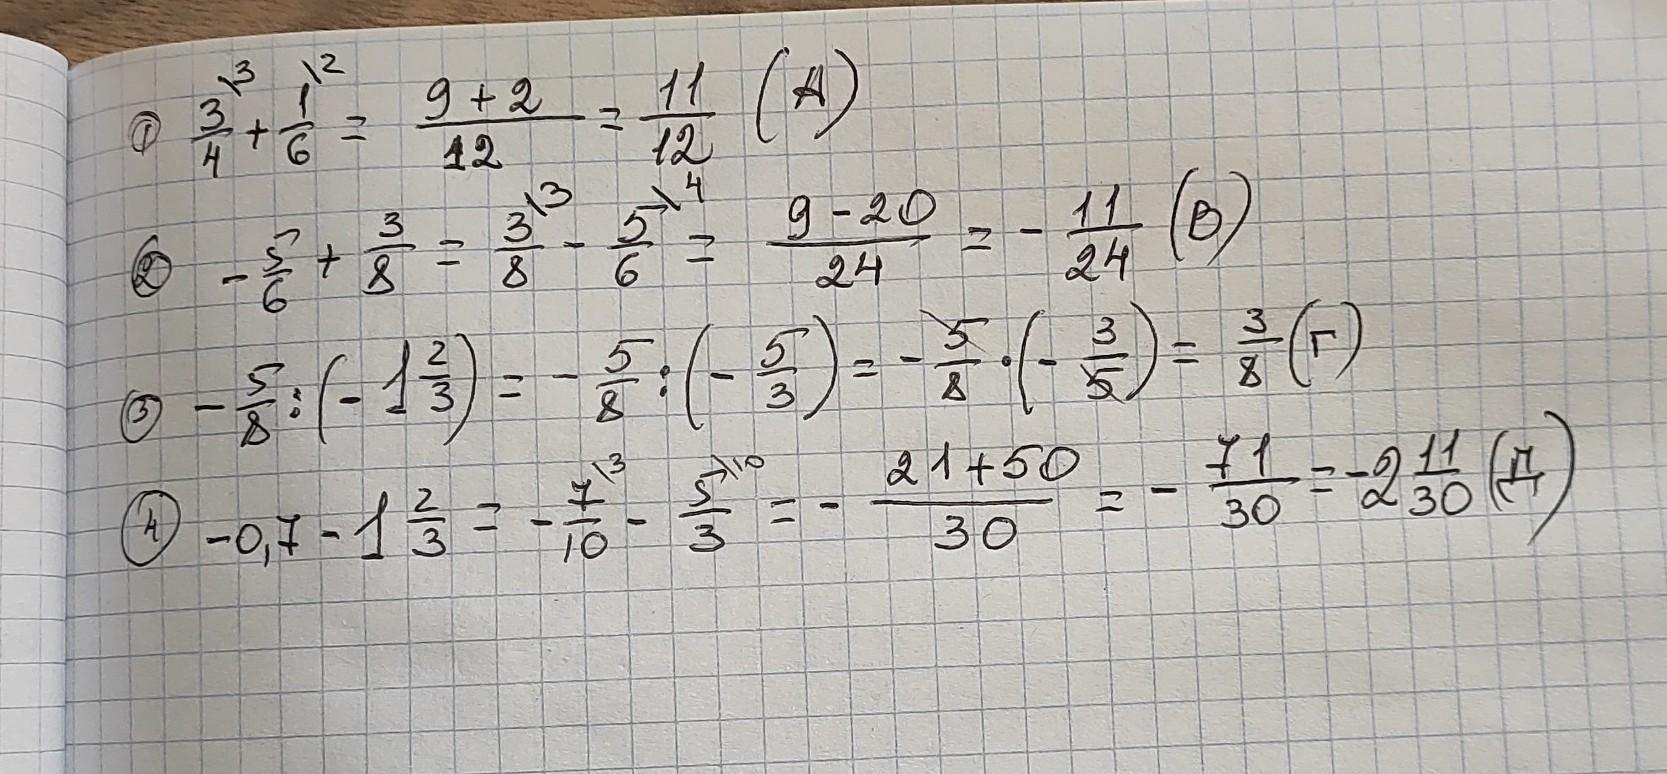 ① 3/4\3 + 1/6\2 = (9+2)/12 = 11/12 (А)
② -5/6 + 3/8 = 3/8\3 - 5/6\4 = (9-20)/24 = -11/24 (В)
③ -5/8 : (-1 2/3) = -5/8 : (-5/3) = -5/8 · (-3/5) = 3/8 (Г)
④ -0,7 - 1 2/3 = -7/10\3 - 5/3\10 = -(21+50)/30 = -71/30 = -2 11/30 (Д)